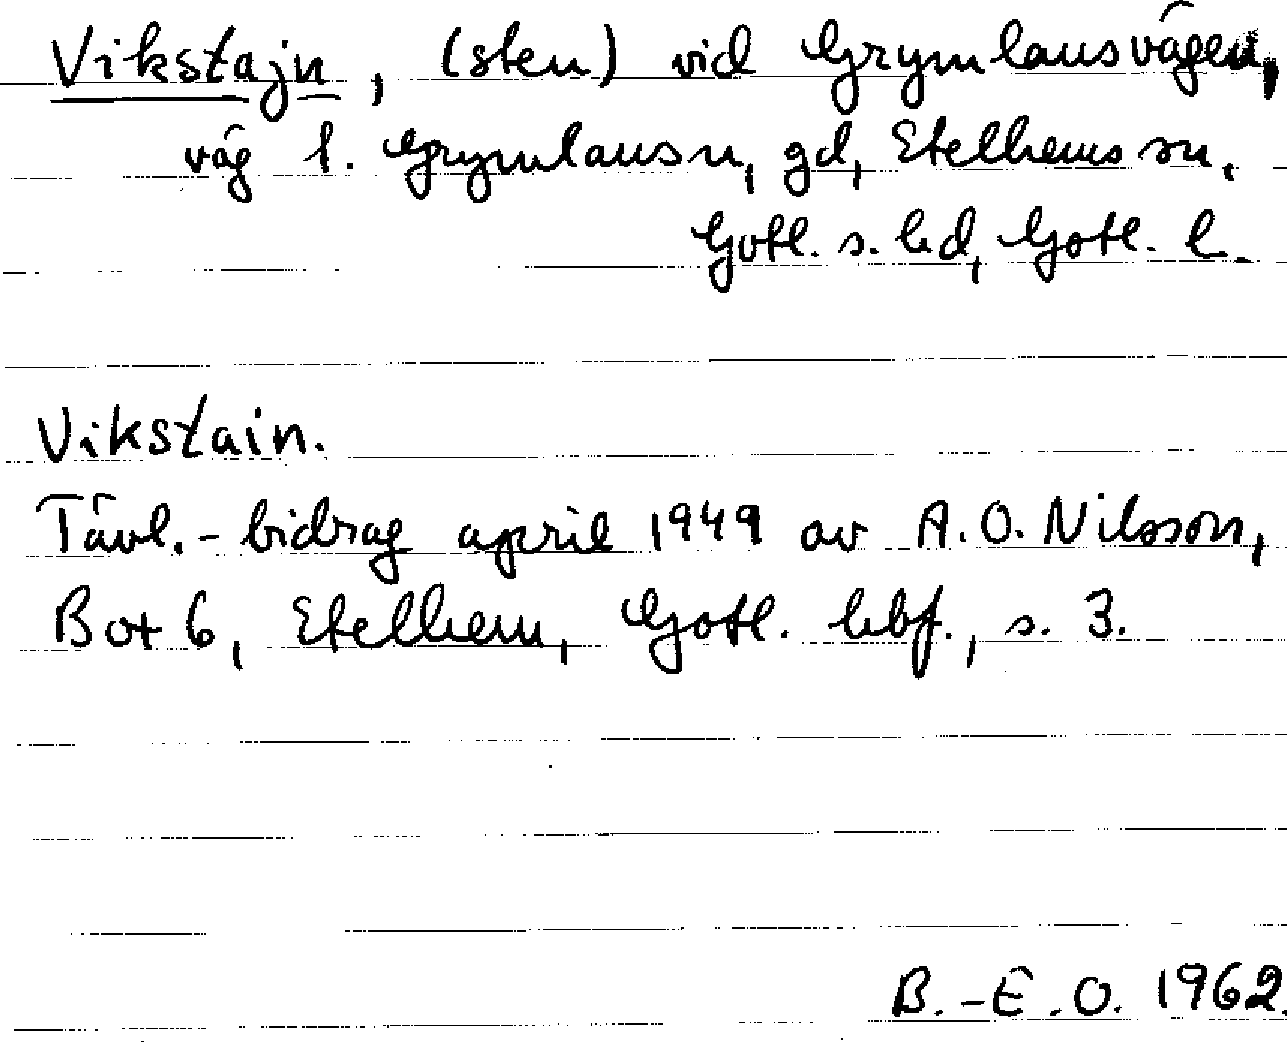 Vikstajn, (sten) vid Grymlausvägen,
väg t. Grymlausn, gd, Etelhems sn.
Gotl. s. hd, Gotl. l.
Vikstain.
Tävl.-bidrag april 1949 av A.O. Nilsson,
Box 6, Etelhem, Gotl. hbf., s. 3.
B.-E.O. 1962.